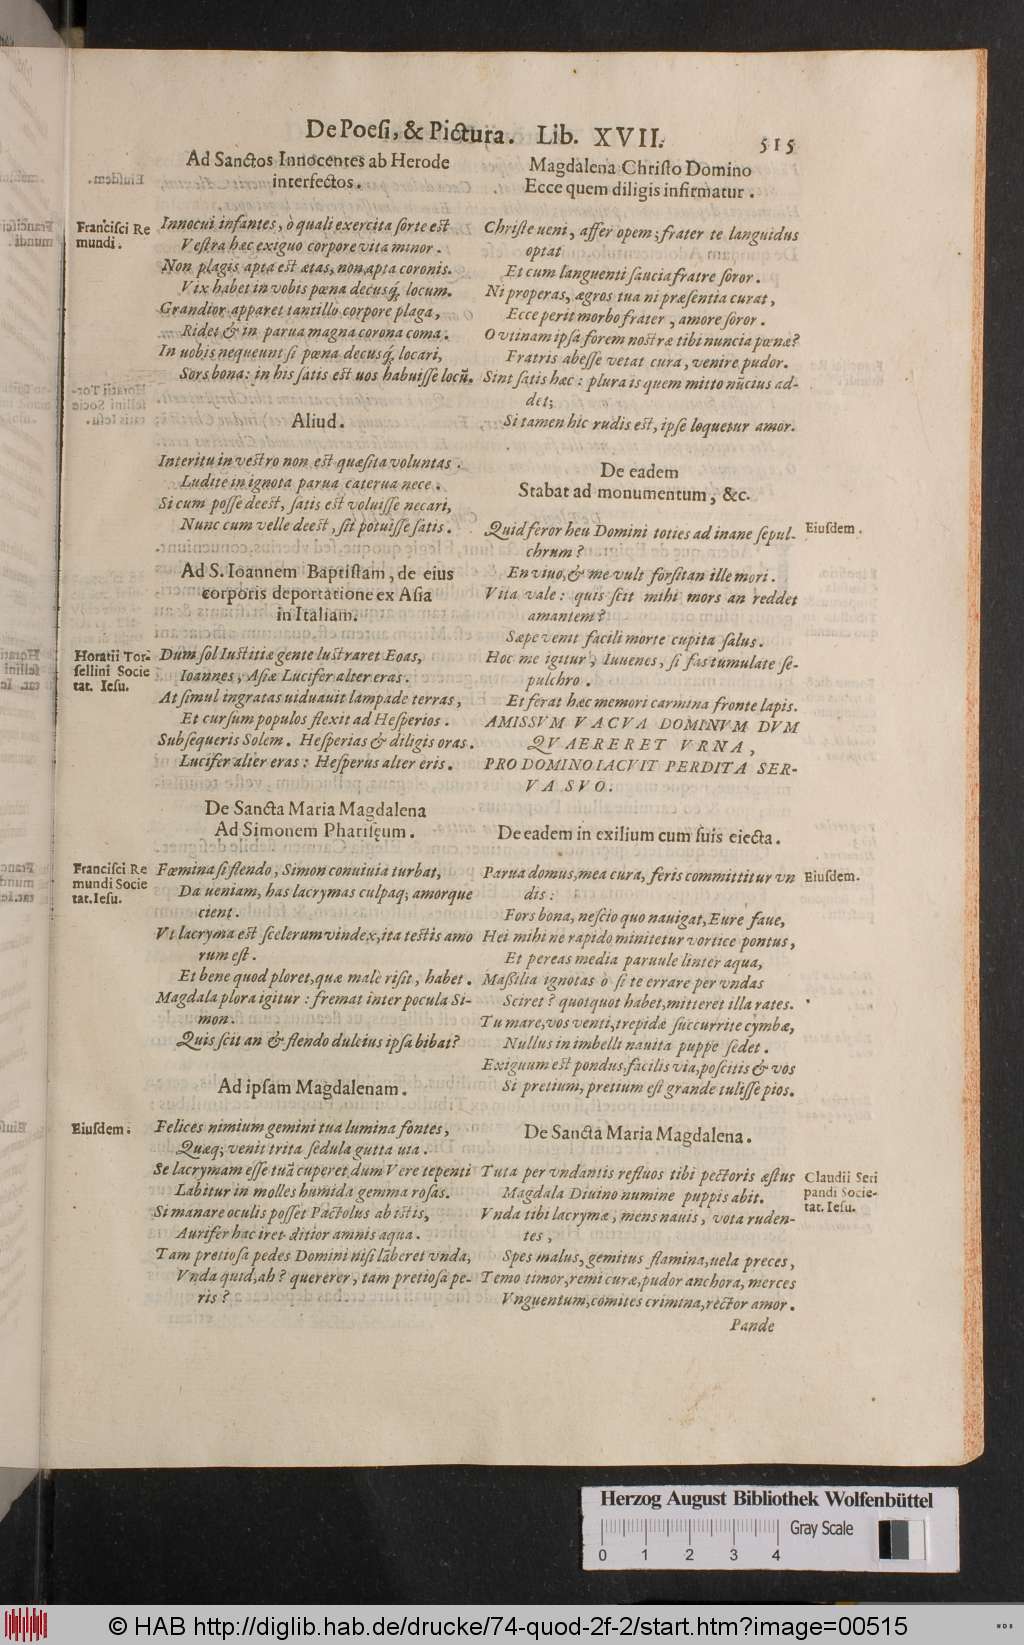 De Poeſi, & Pictura. Lib. XVII. 515
Ad Sanctos Innocentes ab Herode
interfectos.
Franciſci Re
mundi.
Innocui infantes, ò quali exercita ſorte eſt
Veſtra hæc exiguo corpore vita minor.
Non plagis apta eſt ætas, non apta coronis.
Vix habet in vobis pœna decusq́; locum.
Grandior apparet tantillo corpore plaga,
Ridet & in parua magna corona coma.
In uobis nequeunt ſi pœna decusq́; locari,
Sors bona: in his ſatis eſt uos habuiſſe locū.
Aliud.
Interitu in veſtro non eſt quæſita voluntas.
Ludite in ignota parua caterua nece.
Si cum poſſe deeſt, ſatis eſt voluiſſe necari,
Nunc cum velle deeſt, ſit potuiſſe ſatis.
Ad S. Ioannem Baptiſtam, de eius
corporis deportatione ex Aſia
in Italiam.
Horatii Tor-
ſellini Socie
tat. Ieſu.
Dum ſol Iuſtitiæ gente luſtraret Eoas,
Ioannes, Aſiæ Lucifer alter eras.
At ſimul ingratas uiduauit lampade terras,
Et curſum populos flexit ad Heſperios.
Subſequeris Solem. Heſperias & diligis oras.
Lucifer alter eras: Heſperus alter eris.
De Sancta Maria Magdalena
Ad Simonem Phariſęum.
Franciſci Re
mundi Socie
tat. Ieſu.
Fœmina ſi flendo, Simon conuiuia turbat,
Da ueniam, has lacrymas culpaq; amorque
cient.
Vt lacryma eſt ſcelerum vindex, ita teſtis amo
rum eſt.
Et bene quod ploret, quæ malè riſit, habet.
Magdala plora igitur: fremat inter pocula Si-
mon.
Quis ſcit an & flendo dulcius ipſa bibat?
Ad ipſam Magdalenam.
Eiuſdem.
Felices nimium gemini tua lumina fontes,
Quæq; venit trita ſedula gutta uia.
Se lacrymam eſſe tuā cuperet, dum Vere tepenti
Labitur in molles humida gemma roſas.
Si manare oculis poſſet Pactolus ab iſtis,
Aurifer hac iret ditior amnis aqua.
Tam pretioſa pedes Domini niſi lāberet vnda,
Vnda quid, ah? quererer, tam pretioſa pe-
ris?
Magdalena Chriſto Domino
Ecce quem diligis infirmatur.
Chriſte ueni, affer opem; frater te languidus
optat
Et cum languenti ſaucia fratre ſoror.
Ni properas, ægros tua ni præſentia curat,
Ecce perit morbo frater, amore ſoror.
O vtinam ipſa forem noſtræ tibi nuncia pœnæ?
Fratris abeſſe vetat cura, venire pudor.
Sint ſatis hæc: plura is quem mitto nūcius ad-
det;
Si tamen hic rudis eſt, ipſe loquetur amor.
De eadem
Stabat ad monumentum, &c.
Eiuſdem.
Quid feror heu Domini toties ad inane ſepul-
chrum?
En viuo, & me vult forſitan ille mori.
Vita vale: quis ſcit mihi mors an reddet
amantem?
Sæpe venit facili morte cupita ſalus.
Hoc me igitur, Iuuenes, ſi fas tumulate ſe-
pulchro.
Et ferat hæc memori carmina fronte lapis.
AMISSVM VACVA DOMINVM DVM
QVAERERET VRNA,
PRO DOMINO IACVIT PERDITA SER-
VA SVO.
De eadem in exilium cum ſuis eiecta.
Eiuſdem.
Parua domus, mea cura, feris committitur vn
dis:
Fors bona, neſcio quo nauigat, Eure faue,
Hei mihi ne rapido minitetur vortice pontus,
Et pereas media paruule linter aqua,
Maſſilia ignotas ò ſi te errare per vndas
Sciret? quotquot habet, mitteret illa rates.
Tu mare, vos venti, trepidæ ſuccurrite cymbæ,
Nullus in imbelli nauita puppe ſedet.
Exiguum eſt pondus, facilis via, poſcitis & vos
Si pretium, pretium eſt grande tuliſſe pios.
De Sancta Maria Magdalena.
Claudii Seri
pandi Socie-
tat. Ieſu.
Tuta per vndantis refluos tibi pectoris æſtus
Magdala Diuino numine puppis abit.
Vnda tibi lacrymæ, mens nauis, vota ruden-
tes,
Spes malus, gemitus flamina, uela preces,
Temo timor, remi curæ, pudor anchora, merces
Vnguentum, comites crimina, rector amor.
Pande
Herzog August Bibliothek Wolfenbüttel
Gray Scale
0 1 2 3 4
© HAB http://diglib.hab.de/drucke/74-quod-2f-2/start.htm?image=00515